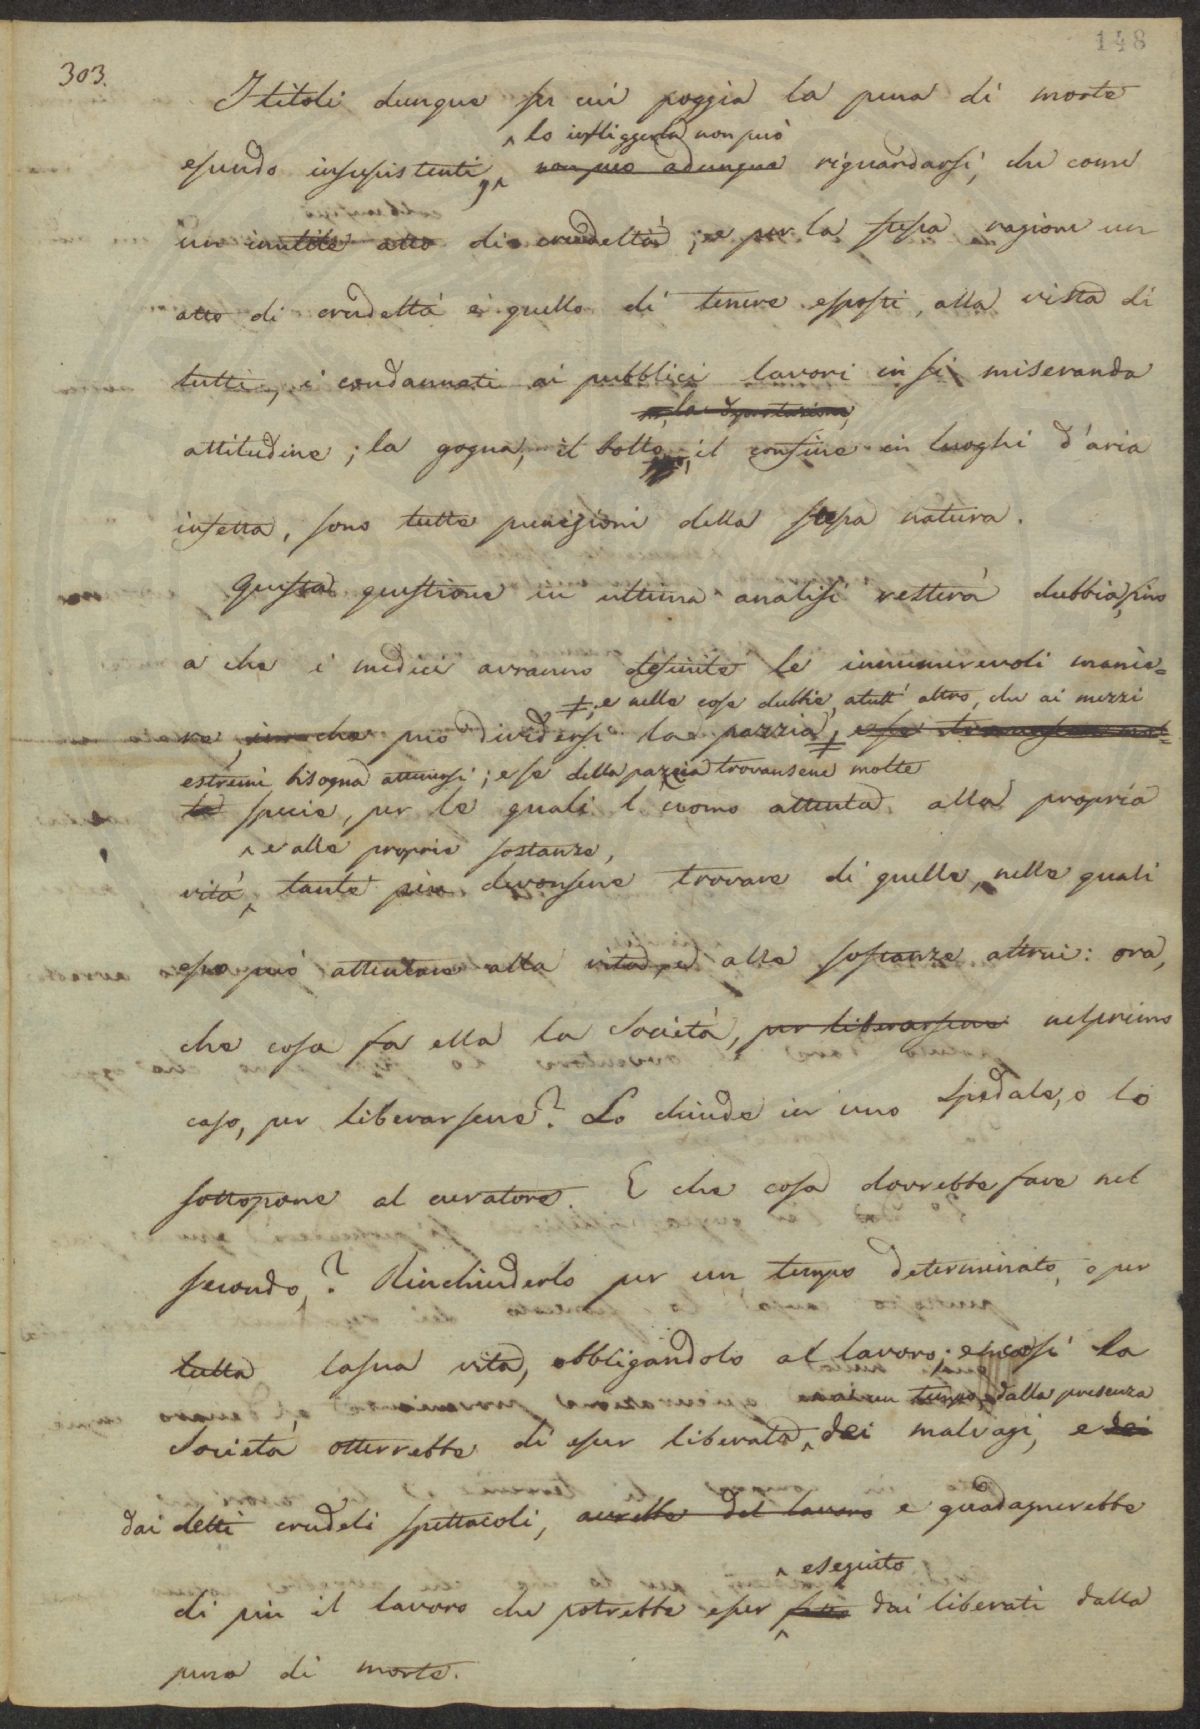 148
303.
I titoli dunque su cui poggia la pena di morte
lo infliggerla non può
essendo insussistenti, non può adunque riguardarsi, che come
un inutile atto di crudeltà; e per la stessa ragione un
atto di crudeltà è quello di tenere esposti, alla vista di
tutti, i condannati ai pubblici lavori in sì miseranda
la deportazione,
attitudine; la gogna, il bollo, il confine in luoghi d'aria
infetta, sono tutte punizioni della stessa natura.
Questa questione in ultima analisi resterà dubbia, sino
a che i medici avranno definite le innumerevoli manie=
‡, e nelle cose dubbie a tutt' altro, che ai mezzi
re, in che può dividersi la pazzia; ‡
estremi bisogna attenersi; e se della pazzia trovansene molte
le specie, per le quali l'uomo attenta alla propria
e alle proprie sostanze,
vita, tante più devonsene trovare di quelle, nelle quali
esso può attentare alla vita, e alle sostanze altrui: ora,
che cosa fa ella la Società, per liberarsene nel primo
caso, per liberarsene? Lo chiude in uno spedale, o lo
sottopone al curatore. E che cosa dovrebbe fare nel
secondo? Rinchiuderlo per un tempo determinato, o per
tutta la sua vita, obbligandolo al lavoro: e così la
in un tempo dalla presenza
Società otterrebbe di esser liberata dei malvagi, e dei
dai detti crudeli spettacoli, avrebbe del lavoro e guadagnerebbe
eseguito
di più il lavoro che potrebbe esser fatto dai liberati dalla
pena di morte.